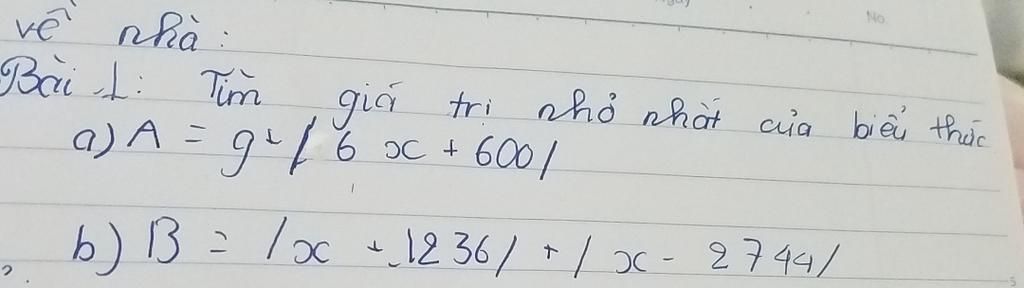 về nhà:
Bài 1: Tìm giá trị nhỏ nhất của biểu thức
a) A = 9 + | 6 x + 600 |
b) B = | x + 1236 | + | x - 2744 |